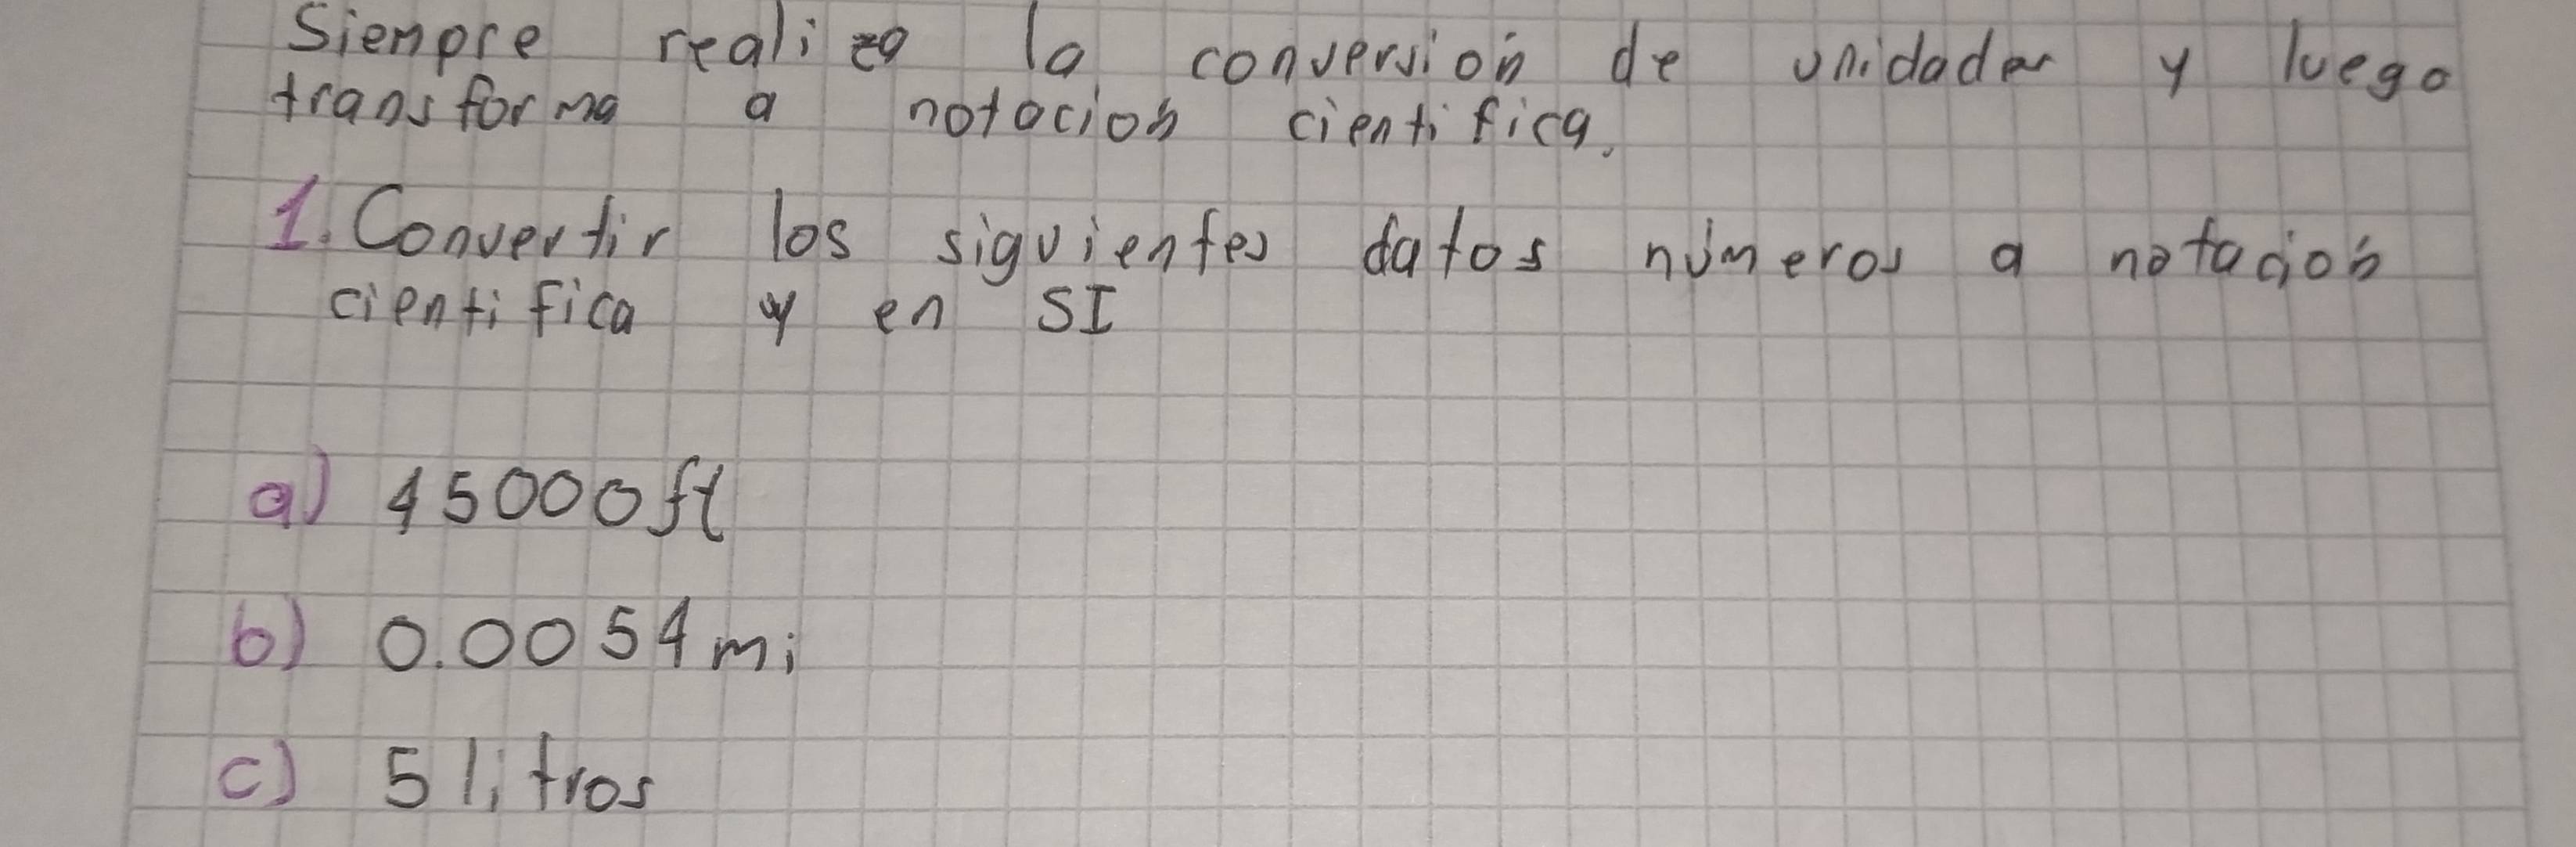 Siempre realiza la conversión de unidades y luego
transforma a notación cientifica.
1. Convertir los siguientes datos números a notación
cientifica y en SI
a) 45000ft
b) 0.0054mi
c) 5 litros